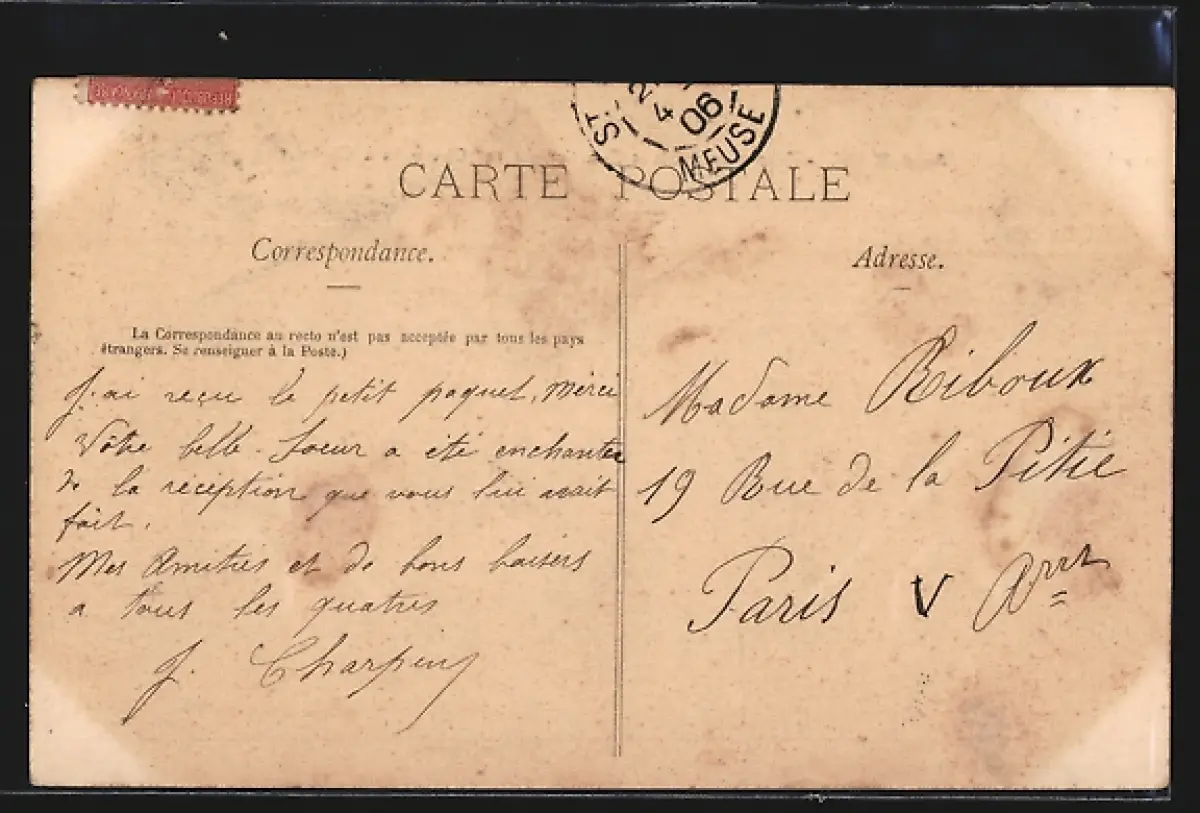 REPUBLIQUE FRANCAISE
ST
2
4
06
MEUSE
CARTE POSTALE
Correspondance.
La Correspondance au recto n'est pas acceptée par tous les pays
étrangers. Se renseigner à la Poste.)
J'ai reçu le petit paquet, merci
Votre belle-soeur a été enchantée
de la réception que vous lui avait
fait.
Mes Amitiés et de bons baisers
a tous les quatres
J.
Adresse.
Madame Riboux
19 Rue de la Pitié
Paris V Arrt